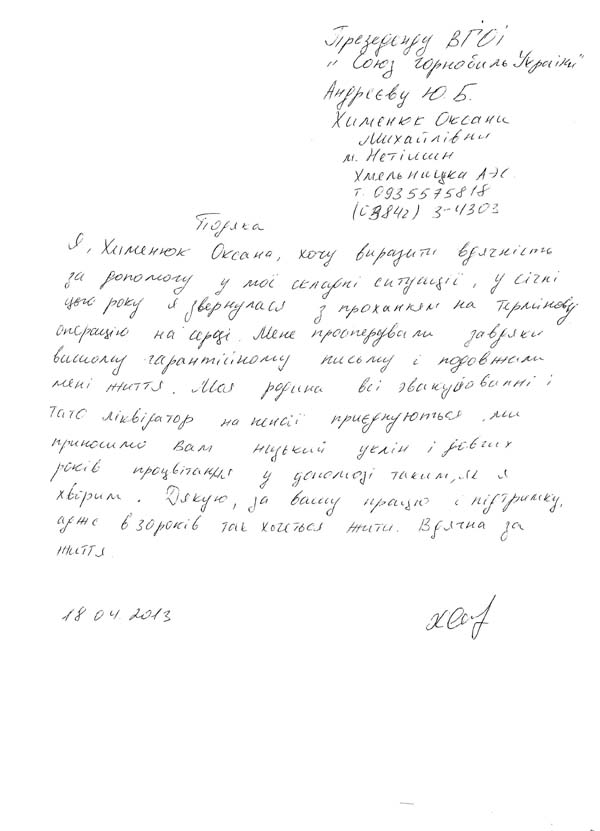 Презеденду ВГОі
"Союз Чорнобиль України"
Андреєву Ю. Б.
Хименюк Оксани
Михайлівни
м. Нетішин
Хмельницка АЭС
т. 0935575818
(03842) 3-4303
Подяка
Я, Хименюк Оксана, хочу виразити вдячність
за допомогу у мої складні ситуації, у січні
цього року я звернулася з проханням на термінову
операцію на серці. Мене прооперували завдяки
вашому гарантійному письму і подовжили
мені життя. Моя родина всі эвакуйованні і
тато ліквідатор на пенсії приєднуються, ми
приносимо Вам низький уклін і довгих
років процвітання у допомозі таким, як я
хворим. Дякую, за вашу працю і підтримку,
адже в 30 років так хочеться жити. Вдячна за
життя.
18 04. 2013